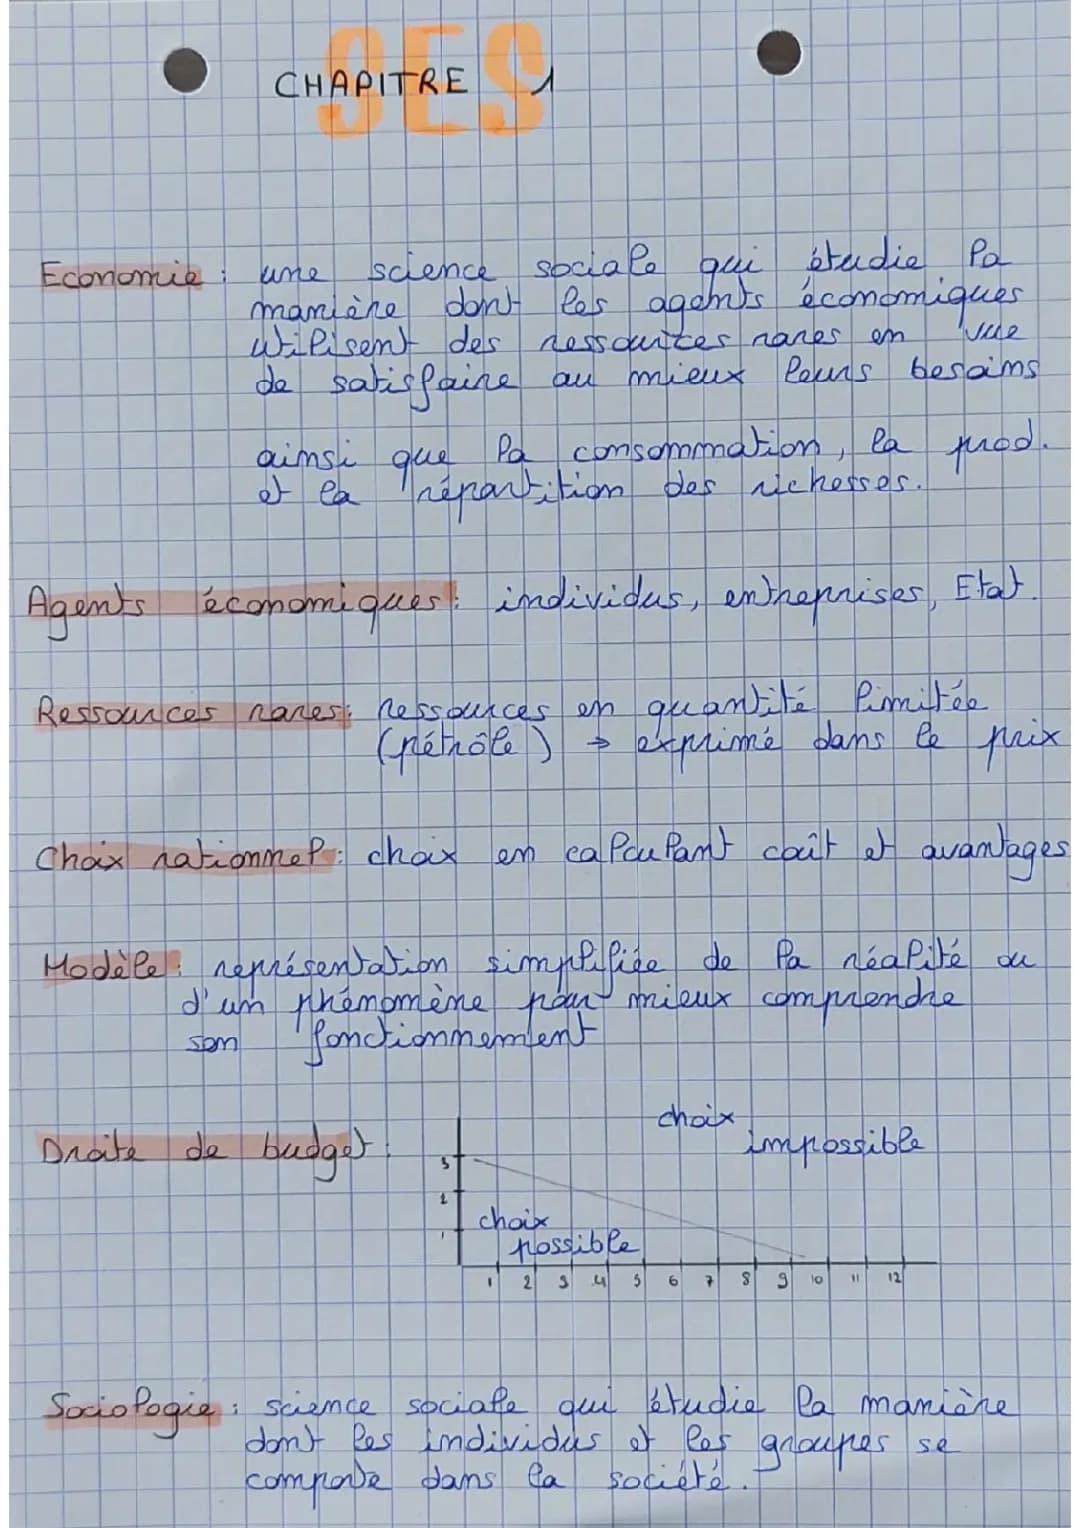 SES
CHAPITRE 1
Economie : une science sociale qui étudie la
manière dont les agents économiques
utilisent des ressources rares en vue
de satisfaire au mieux leurs besoins
ainsi que la consommation, la prod.
et la répartition des richesses.
Agents économiques : individus, entreprises, Etat.
Ressources rares : ressources en quantité limitée
(pétrôle) → exprimé dans le prix
Choix rationnel : choix en calculant coût et avantages
Modèle : représentation simplifiée de la réalité ou
d'un phénomène pour mieux comprendre
son fonctionnement
Droite de budget :
choix
impossible
3
2
1
choix
possible
1 2 3 4 5 6 7 8 9 10 11 12
Sociologie : science sociale qui étudie la manière
dont les individus et les groupes se
comporte dans la société.